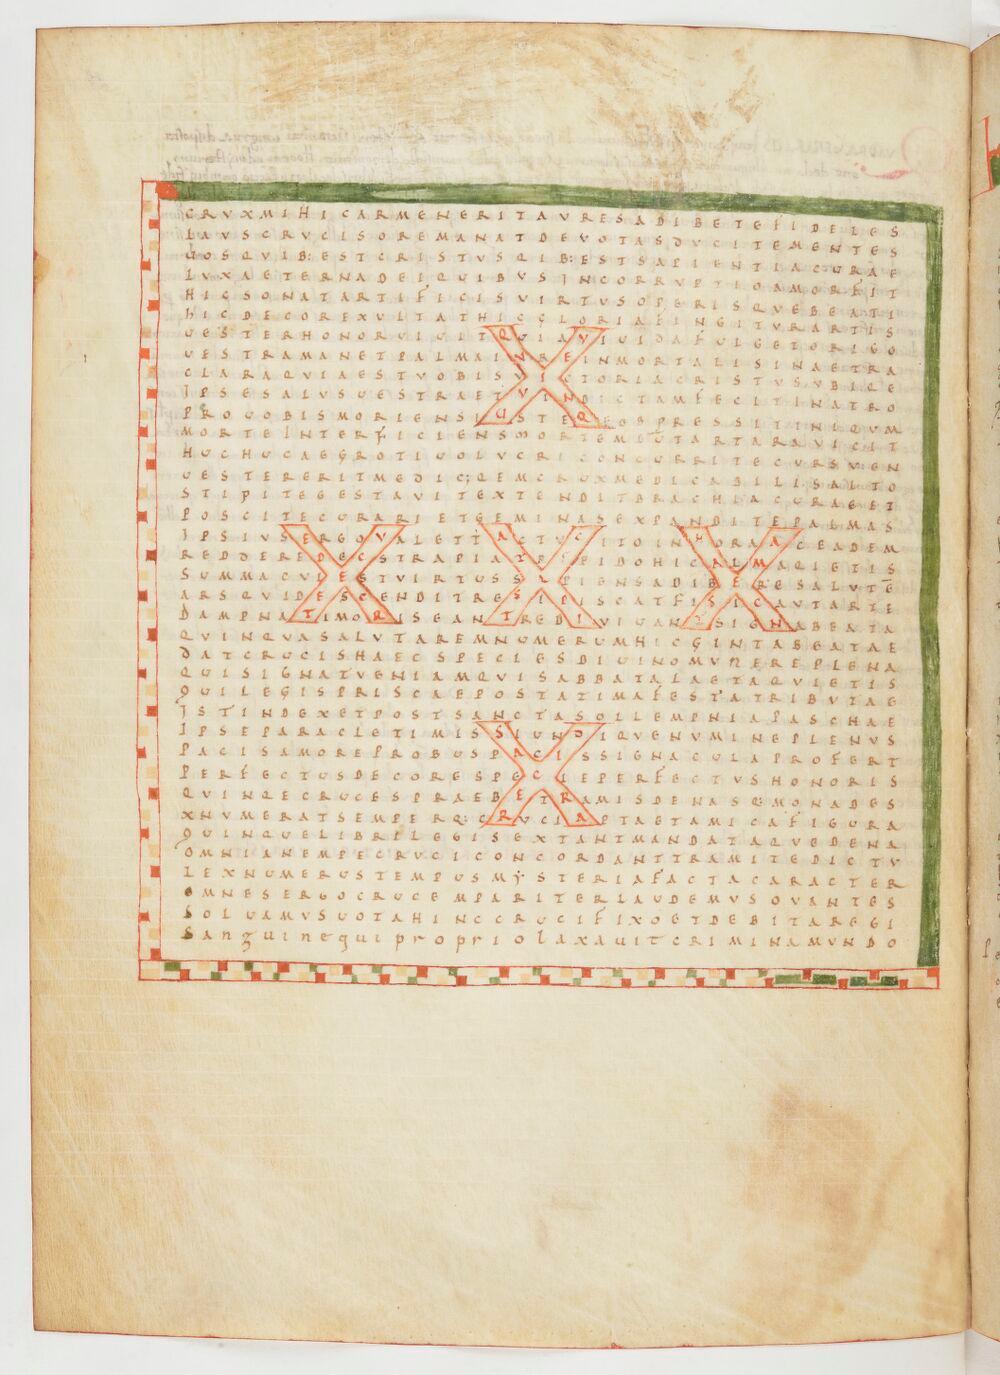 CRVXMIHICARMENERITAVRESADIBETEFIDELES
LAVSCRVCISOREMANATDEVOTASDVCITEMENTES
QOSQVIB:ESTCRISTVSQIB:ESTSAPIENTIACURAE
LVXAETERNADEIQUIBVSINCORRVPTIOAMORFIT
HICSONATARTIFICISVIRTVSOPERISQVEBEATI
HICDECOREXULTATHICGLORIAFINGITVRARTIS
UESTERHONORUIUITQUIAVIUIDAFULGETORIGO
UESTRAMANETPALMAINREINMORTALISINAETRA
CLARAQVIAESTVOBISVICTORIACRISTVSVBIQE
IPSESALVSUESTRAETVINDICTAMFECITINATRO
PROUOBISMORIENSIUSTEQEOBPRESSITINIQVM
MORTEINTERFICIENSMORTEMETTARTARAVICIT
HUCHUCAEGROTIUOLVCRICONCURRITECVRSVEN
UESTERERITMEDIC;QEMCRUXMEDICABILISALTO
STIPITEGESTAVITEXTENDITBRACHIACURAGET
POSCITECURARIETGEMINASEXPANDITEPALMAS
IPSIVSERGOVALETIACTUCITOINHORAACEADEM
REDDEREDECSTRAPIATRESPIDOHICALMAQIETIS
SUMMACVIESTVIRTUSSAPIENSADIBERESALVTE
ARSQVIDESCENDITRESIPISCATFISICAVTARTE
DAMPNATIMORISEANTREDIVIUANTSIGNABEATA
QVINQVASALVTAREMNUMERUMHICGINTABEATAE
DATCRUCISHAECSPECIESDIUINOMVNEREPLENA
QUISIGNATVENIAMQVISABBATALAETAQVIETIS
QUILEGISPRISCAEPOSTATIMAFESTATRIBVTAE
ISTINDEXETPOSTSANCTASOLLEMPNIAPASCHAE
IPSEPARACLETIMISSIUNDIQVENVMINEPLENVS
PACISAMOREPROBUSPACISSIGNACVLAPROFERT
PERFECTUSDECORESPECIEPERFECTVSHONORIS
QVINQECRUCESPRAEBETRAMISDENASQ:MONADES
XNVMERATSEMPERQ:CRVCIAPTAETAMICAFIGURA
QUINQUELIBRILEGISEXTANTMANDATAQVEDENA
OMNIANEMPECRVCICONCORDANTTRAMITEDICTV
LEXNUMERUSTEMPUSMYSTERIAFACTACARACTER
OMNESERGOCRUCEMPARITERLAUDEMVSOVANTES
SOLUAMVSUOTAHINCCRUCIFIXOETDEBITAREGI
SANguinequipropriolaxauitCRIMINAMVNDO